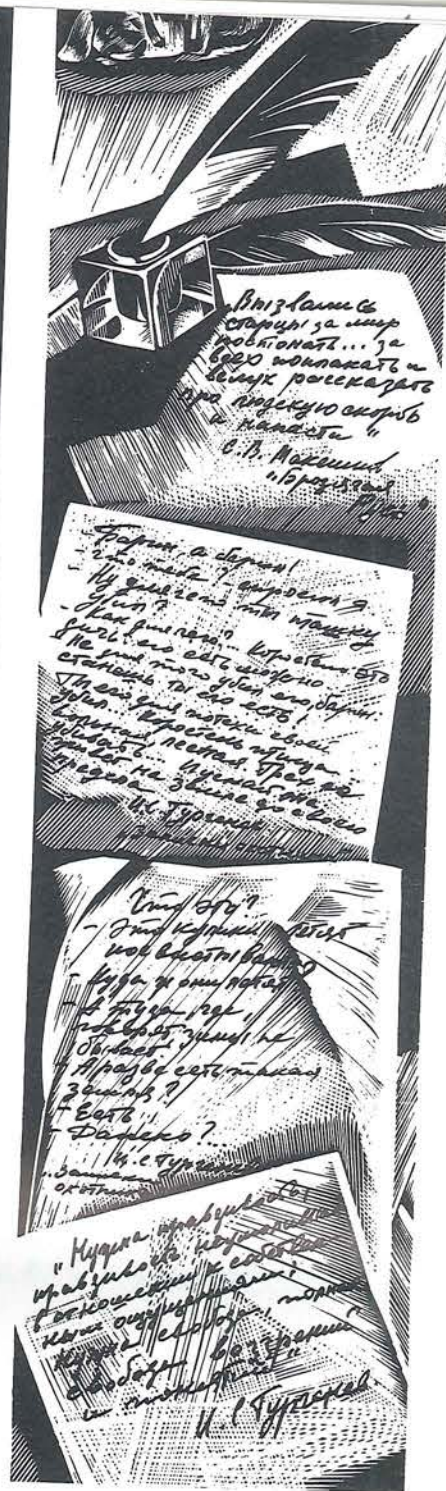 „Вызвались
старцы за мир
постонать... за
всех поплакать и
вслух рассказать
про людскую скорбь
и напасти“
С. В. Максимов
„Бродячая
Русь“
- Барин, а барин!
- Что тебе? спросил я.
- Ну для чего ты пташку
убил?
- Как для чего?.. Коростель это
дичь: его есть можно
- Не для того ты убил его, барин:
станешь ты его есть!
Ты его для потехи своей
убил... Коростель птица
вольная, лесная. Грех её
убивать... И пускай она
живёт на земле до своего
предела
И. С. Тургенев
„Записки охотника“
- Что это?
- Это кулики летят
посвистывают
- Куда ж они летят?
- А туда, где,
говорят, зимы не
бывает
- А разве есть такая
земля?
- Есть
- Далеко?...
И. С. Тургенев
Записки
охот.
„Нужна правдивость,
правдивость неумолимая
в отношении к собствен-
ным ощущениям;
нужна свобода, полная
свобода воззрений
и понятий“
И. С. Тургенев